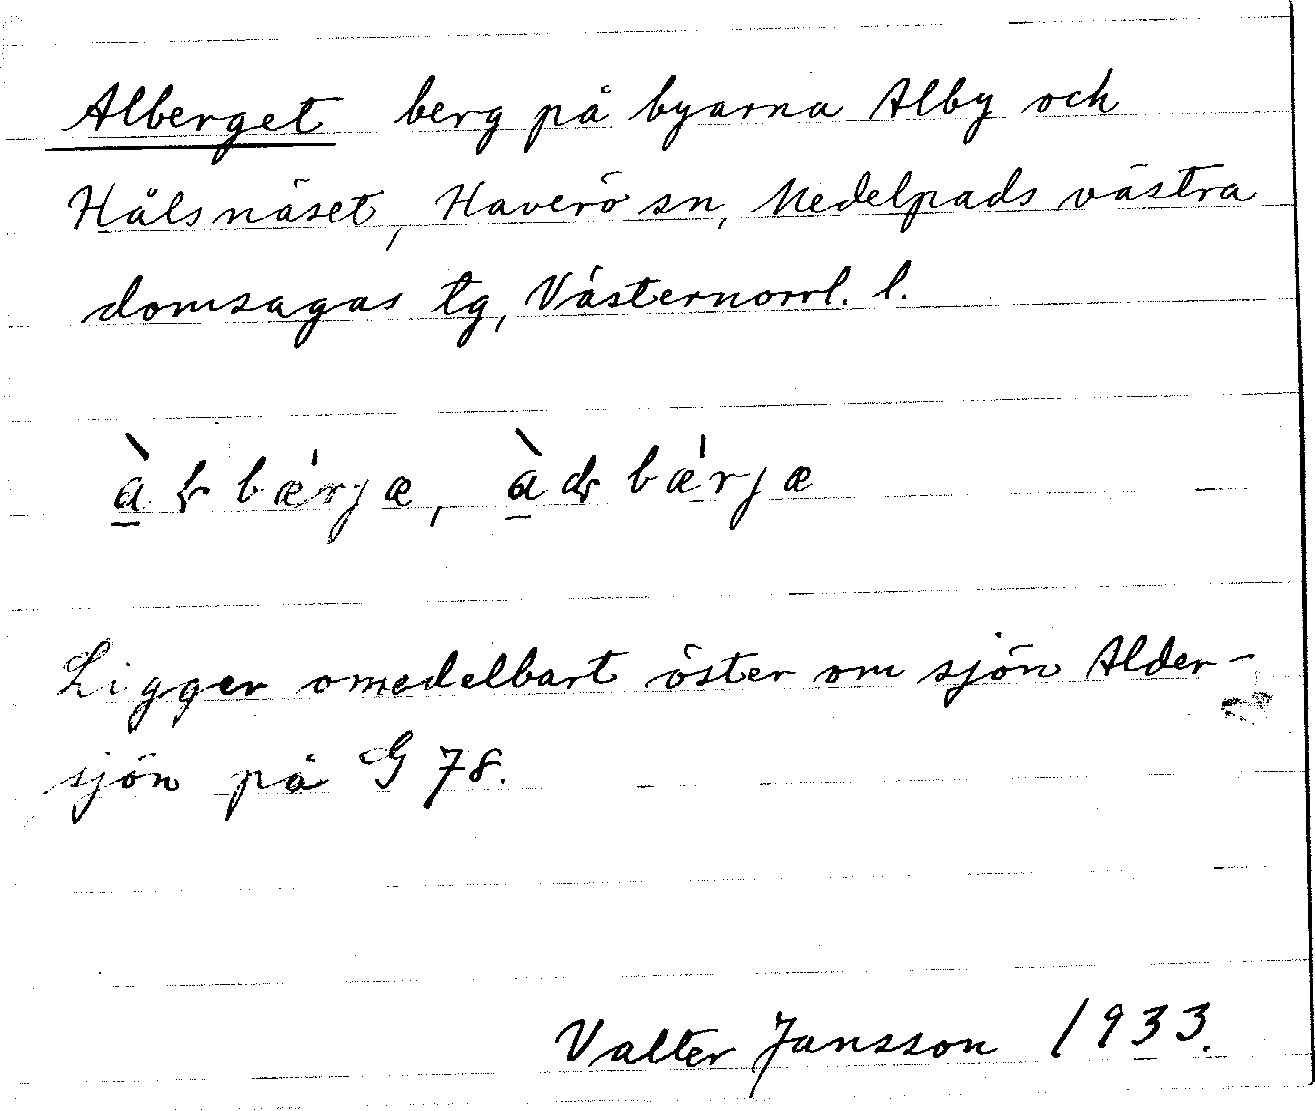 Alberget berg på byarna Alby och
Hålsnäset, Haverö sn, Medelpads västra
domsagas tg, Västernorrl. l.
Ligger omedelbart öster om sjön Alder-
sjön på G 78.
Valter Jansson 1933.